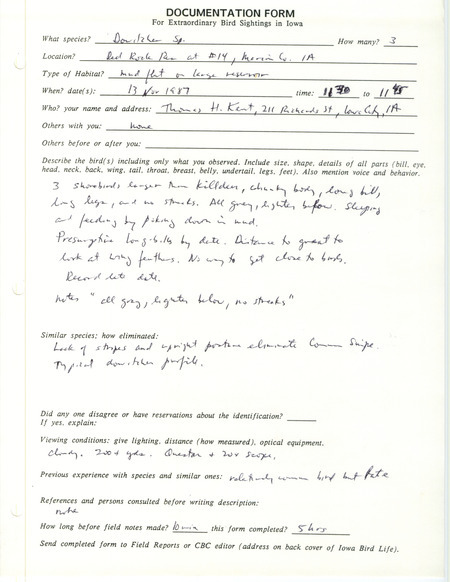 DOCUMENTATION FORM
For Extraordinary Bird Sightings in Iowa
What species? Dowitcher Sp. How many? 3
Location? Red Rock Res at #14, Marion Co. IA
Type of Habitat? mud flat on large reservoir
When? date(s): 13 Nov 1987 time: 11 30 to 11 45
Who? your name and address: Thomas H. Kent, 211 Richards St, Iowa City, IA
Others with you: none
Others before or after you:
Describe the bird(s) including only what you observed. Include size, shape, details of all parts (bill, eye,
head, neck, back, wing, tail, throat, breast, belly, undertail, legs, feet). Also mention voice and behavior.
3 shorebirds larger than killdeer, chunky body, long bill,
long legs, and no streaks. All gray, lighter below. Sleeping
and feeding by picking down in mud.
Presumptive long-bills by date. Distance too great to
look at wing feathers. No way to get close to birds.
Record late date.
notes "all gray, lighter below, no streaks"
Similar species; how eliminated:
Lack of stripes and upright posture eliminate Common Snipe.
Typical dowitcher profile.
Did any one disagree or have reservations about the identification?
If yes, explain:
Viewing conditions: give lighting, distance (how measured), optical equipment.
cloudy. 200+ yds. Questar + 20x scope.
Previous experience with species and similar ones: relatively common bird but late
References and persons consulted before writing description:
none
How long before field notes made? 10 min this form completed? 5 hrs
Send completed form to Field Reports or CBC editor (address on back cover of Iowa Bird Life).